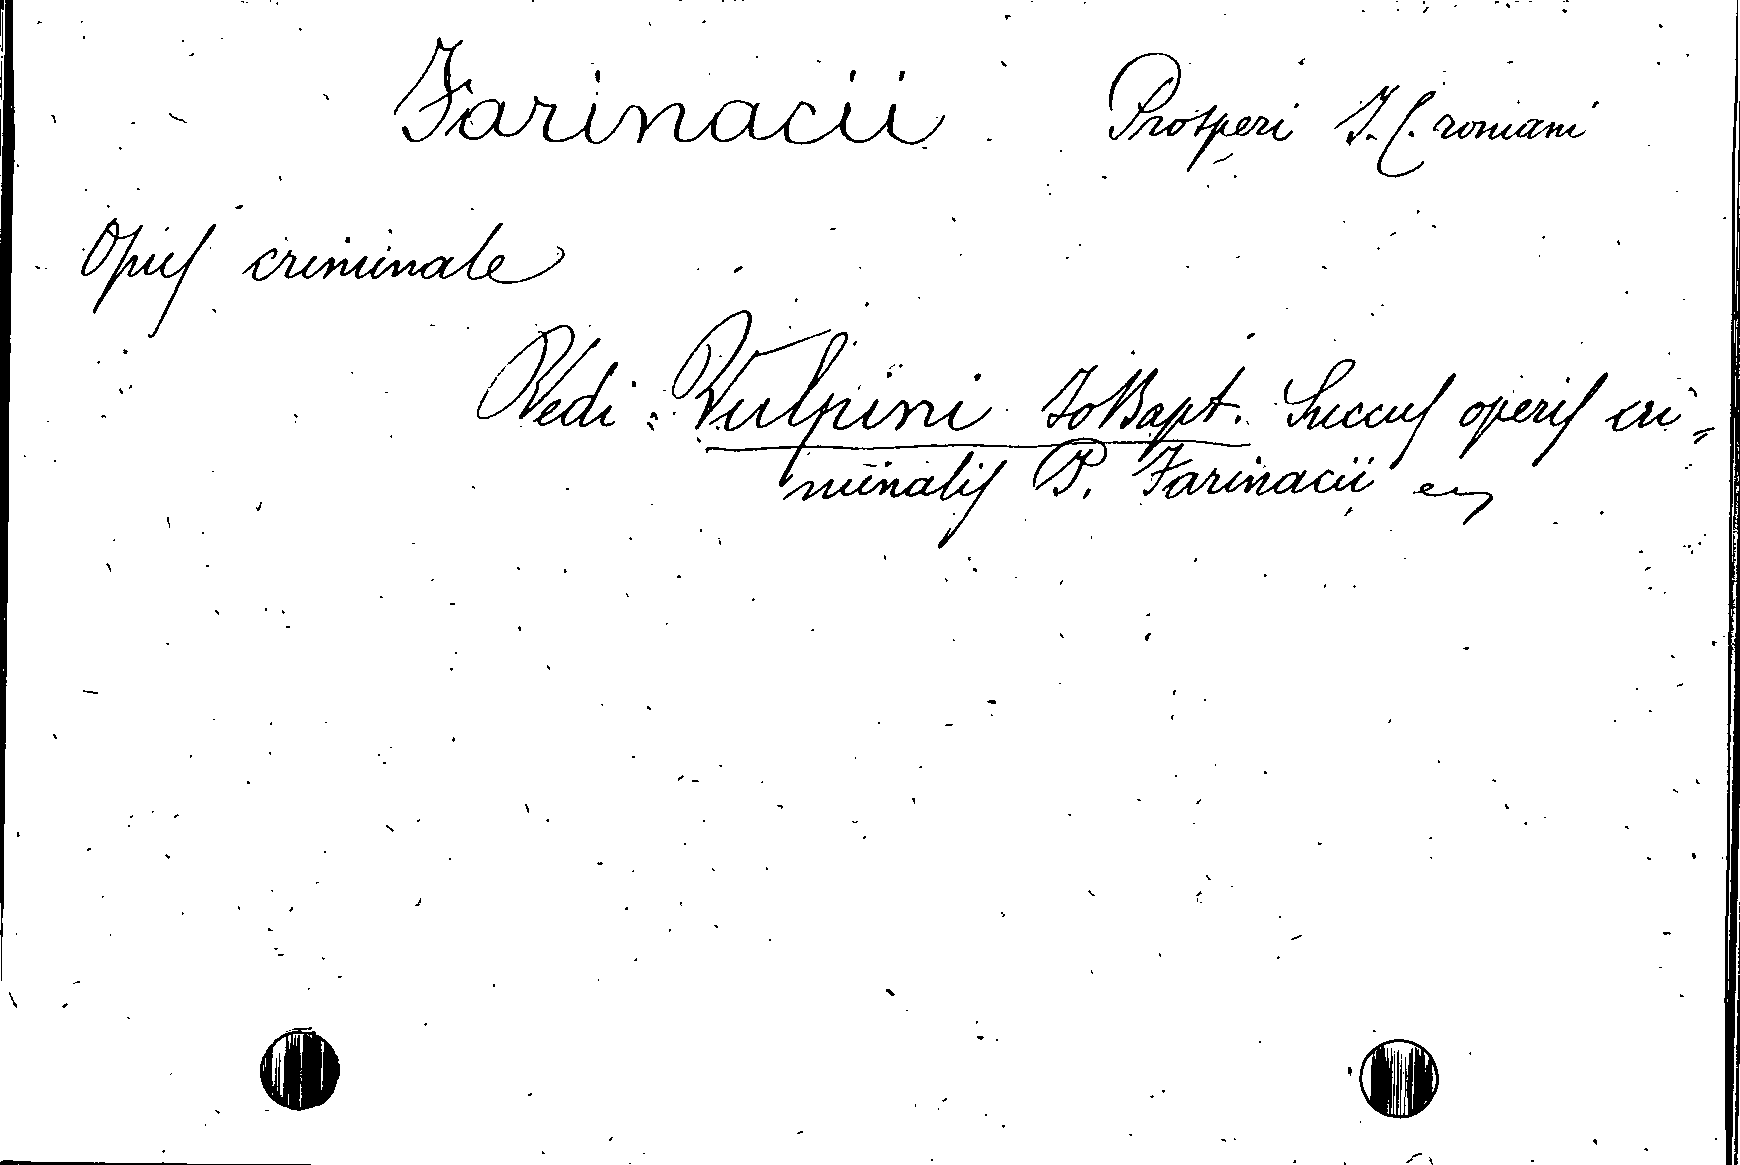 Farinacii Prosperi J. C. romani
Opus criminale
Vedi: Vulpini JoBapt. Succus operis cri-
minalis P. Farinacii